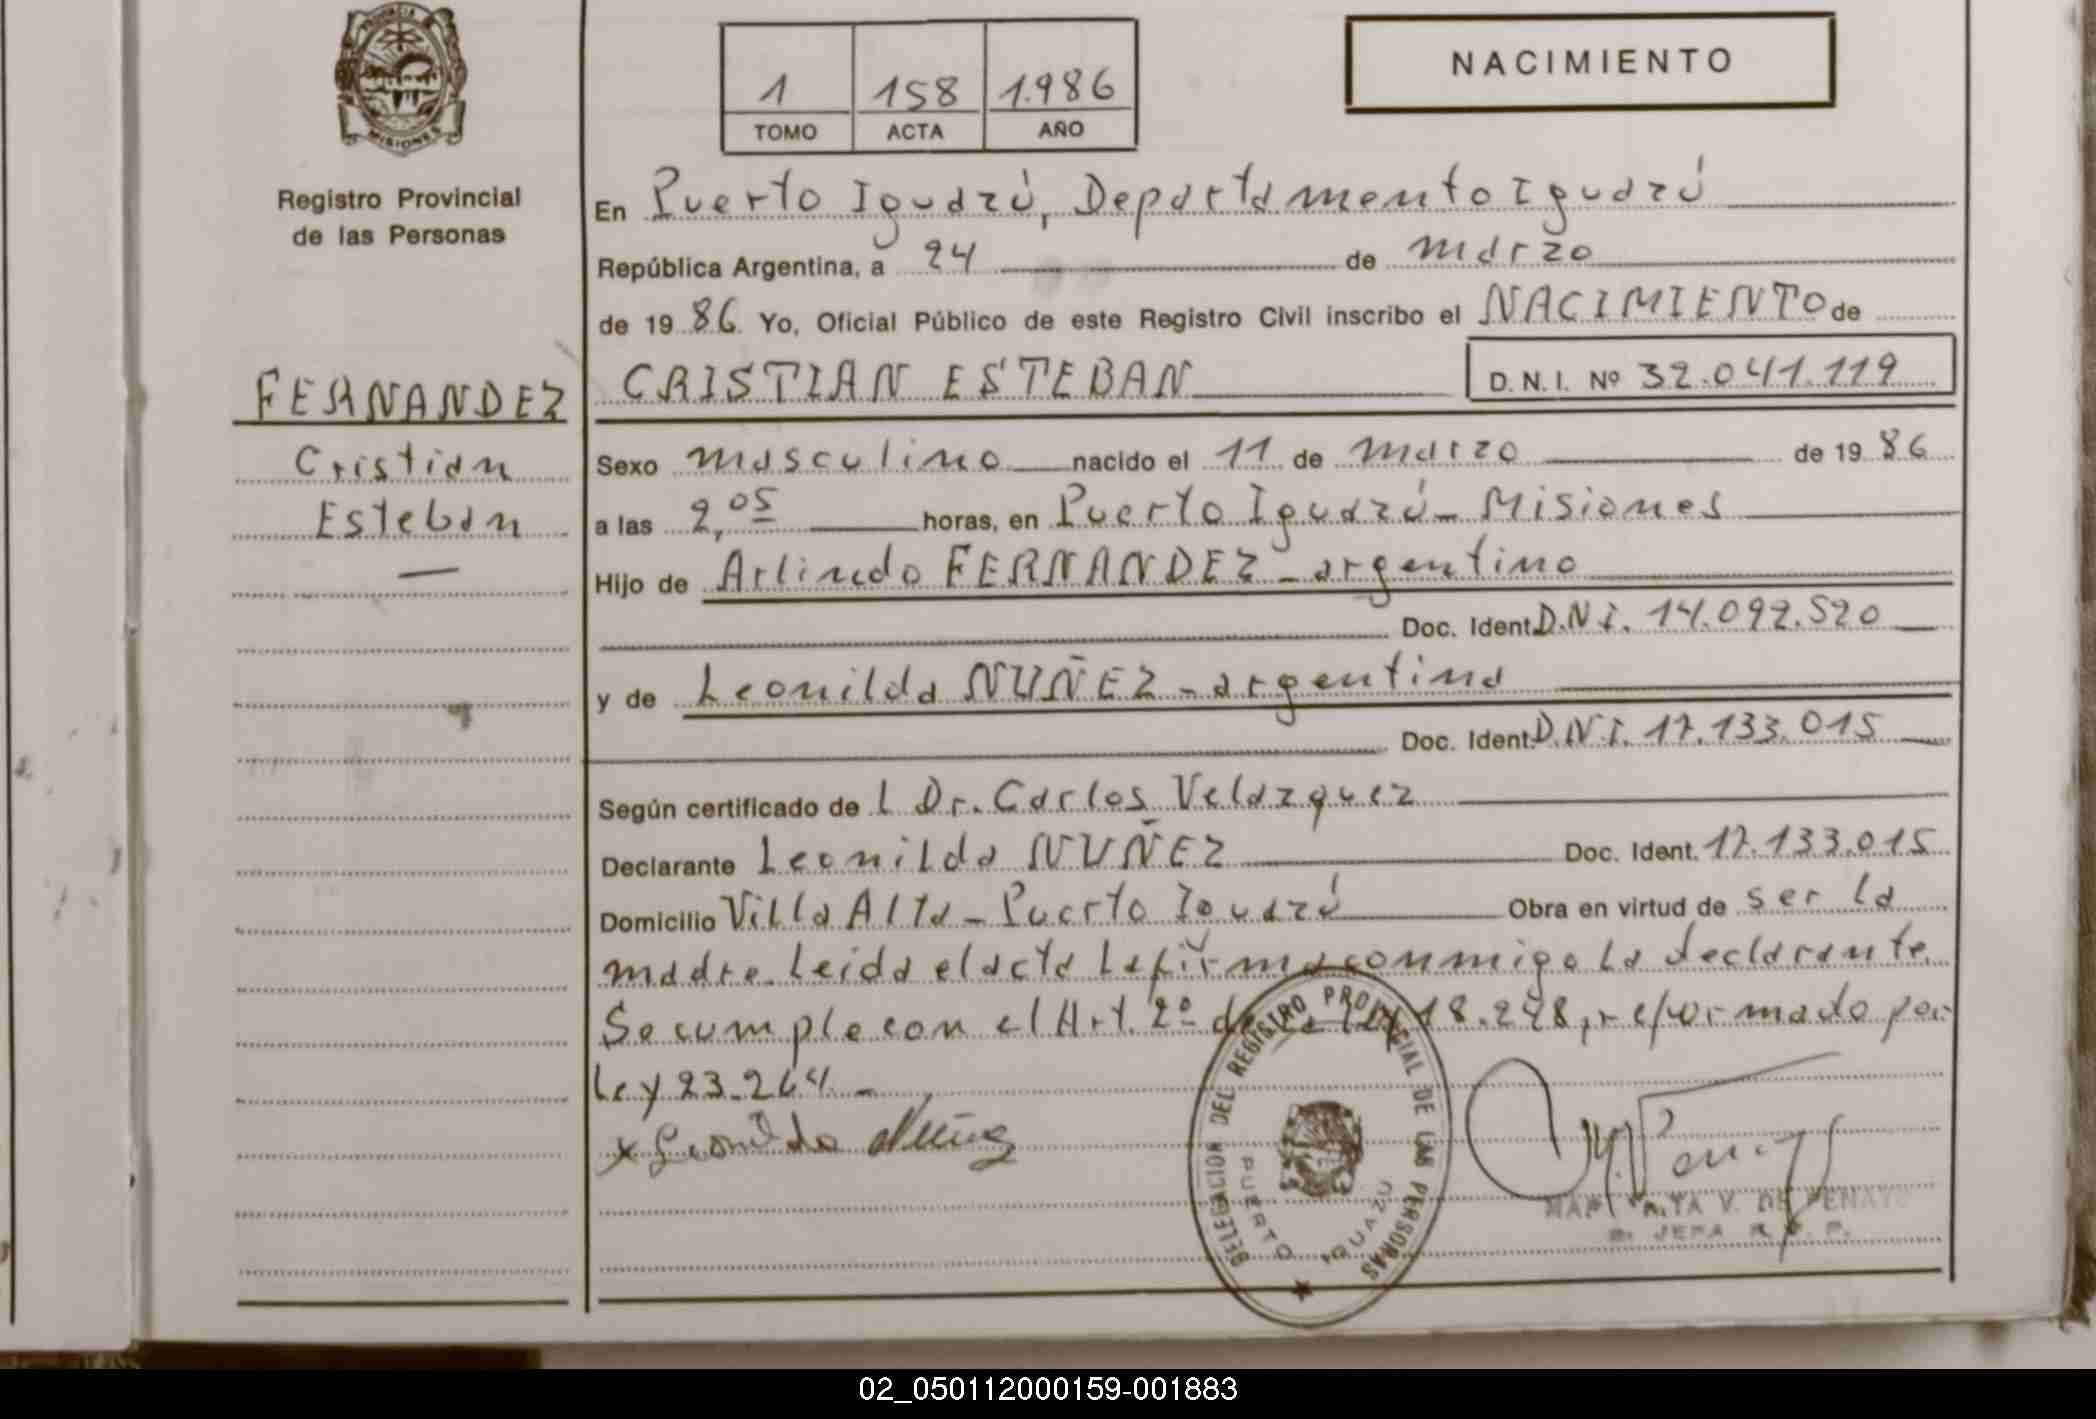 PROVINCIA DE
MISIONES
Registro Provincial
de las Personas
FERNANDEZ
Cristian
Esteban
—
1 158 1.986
TOMO ACTA AÑO
NACIMIENTO
En Puerto Iguazú, Departamento Iguazú
República Argentina, a 24 de marzo
de 1986 Yo, Oficial Público de este Registro Civil inscribo el NACIMIENTO de
CRISTIAN ESTEBAN D.N.I. Nº 32.041.119
Sexo masculino nacido el 11 de marzo de 1986
a las 2,05 horas, en Puerto Iguazú - Misiones
Hijo de Arlindo FERNANDEZ - argentino
Doc. Ident. D.N.I. 14.092.520
y de Leonilda NUÑEZ - argentina
Doc. Ident. D.N.I. 17.133.015
Según certificado de l Dr. Carlos Velazquez
Declarante Leonilda NUÑEZ Doc. Ident. 17.133.015
Domicilio Villa Alta - Puerto Iguazú Obra en virtud de ser la
madre. Leida el acta la firma conmigo la declarante.
Se cumple con el Art. 2º de la Ley 18.248, reformado por
Ley 23.264 -
x Leonilda Nuñez
DELEGACION DEL REGISTRO PROVINCIAL DE LAS PERSONAS
PUERTO IGUAZU
V. DE PENAYO
JEFA R. P. P.
02_050112000159-001883